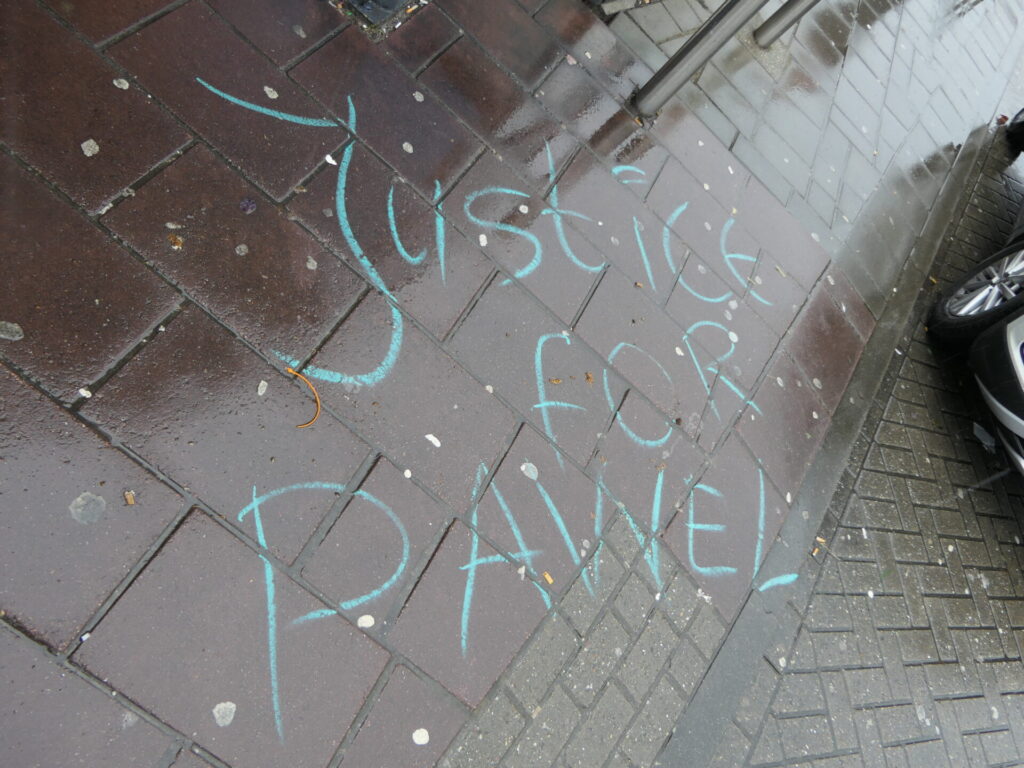 Justice
FOR
PAWEL